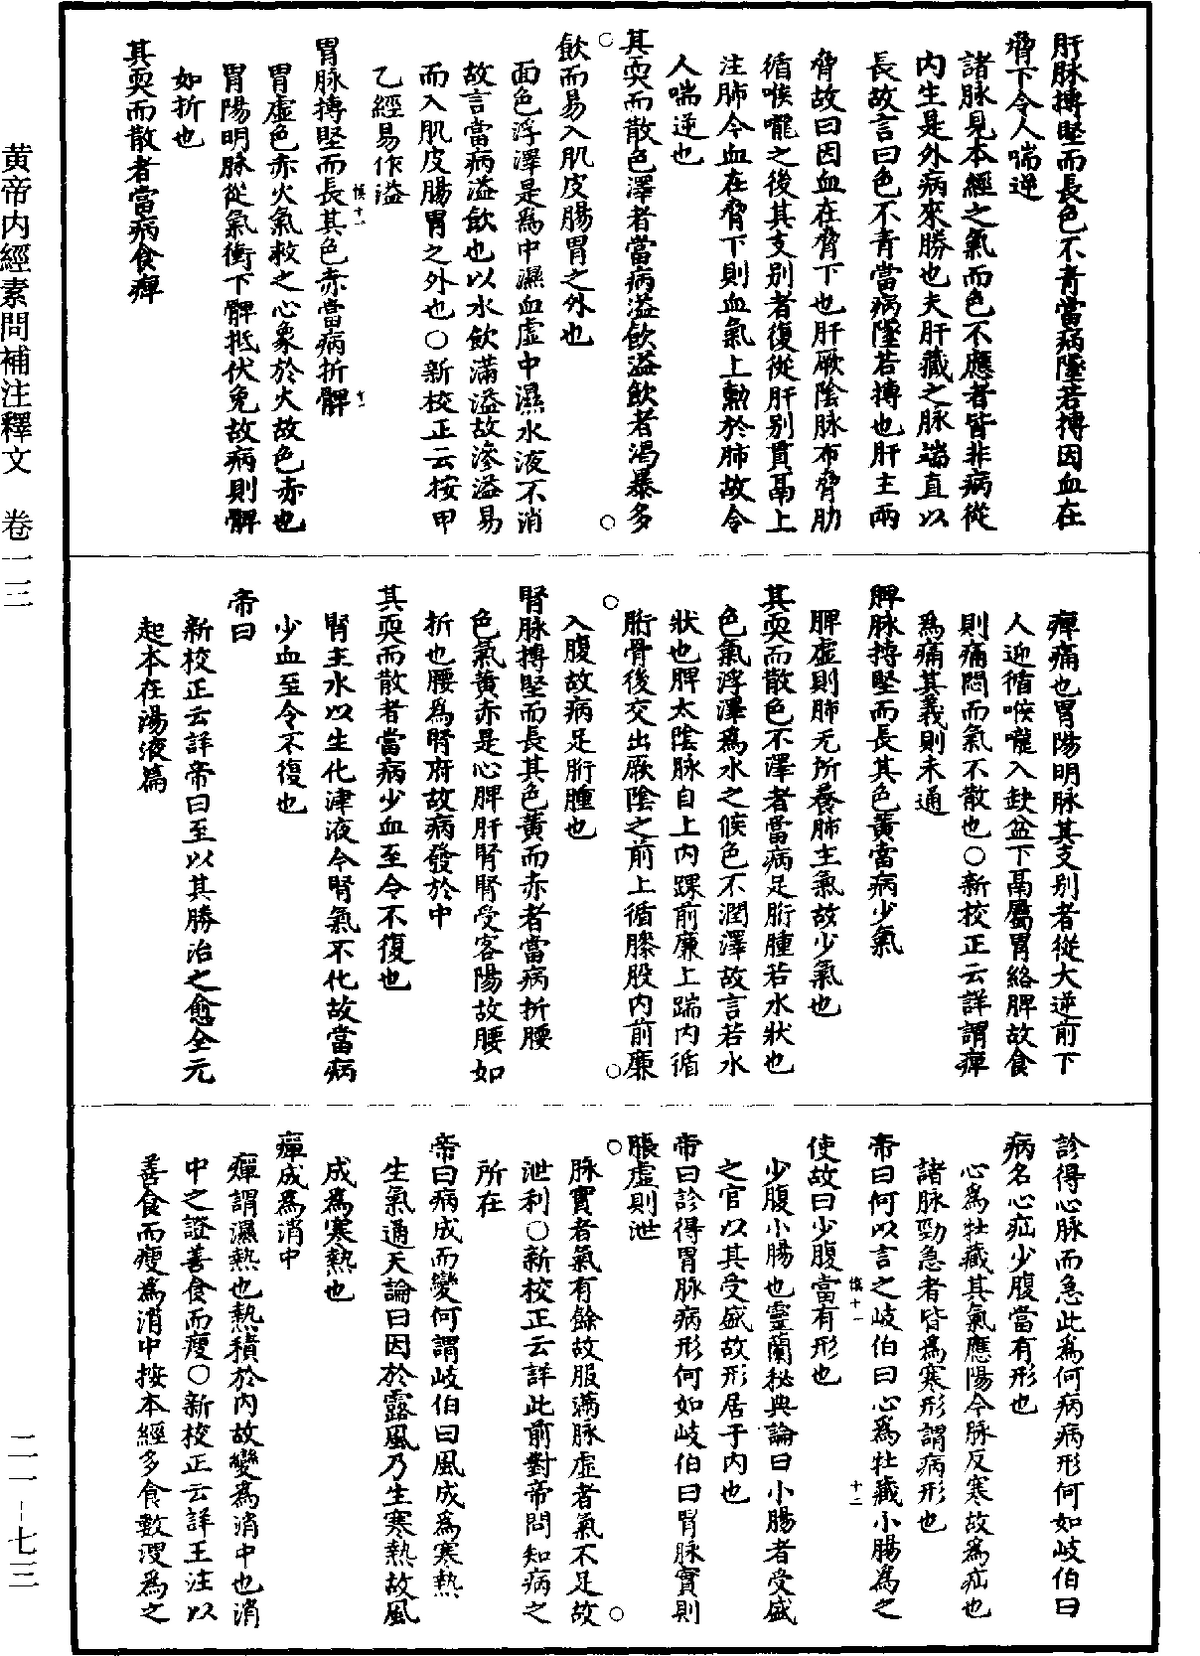 黄帝内經素問補注釋文　卷一三
二一-七三
肝脉搏堅而長色不青當病墜若搏因血在
脅下令人喘逆
諸脉見本經之氣而色不應者皆非病從
内生是外病來勝也夫肝藏之脉端直以
長故言曰色不青當病墜若搏也肝主兩
脅故曰因血在脅下也肝厥陰脉布脅肋
循喉嚨之後其支别者復從肝别貫鬲上
注肺今血在脅下則血氣上勲於肺故令
人喘逆也
其耎而散色澤者當病溢飲溢飲者渴暴多
飲而易入肌皮腸胃之外也
面色浮澤是爲中濕血虚中濕水液不消
故言當病溢飲也以水飲滿溢故滲溢易
而入肌皮腸胃之外也○新校正云按甲
乙經易作溢
胃脉搏堅而長其色赤當病折髀
胃虚色赤火氣救之心象於火故色赤也
胃陽明脉從氣衝下髀抵伏兔故病則髀
如折也
其耎而散者當病食痺
痺痛也胃陽明脉其支别者從大逆前下
人迎循喉嚨入缺盆下鬲屬胃絡脾故食
則痛悶而氣不散也○新校正云詳謂痺
爲痛其義則未通
脾脉搏堅而長其色黄當病少氣
脾虚則肺无所養肺主氣故少氣也
其耎而散色不澤者當病足胻腫若水狀也
色氣浮澤爲水之候色不潤澤故言若水
狀也脾太陰脉自上内踝前廉上踹内循
胻骨後交出厥陰之前上循膝股内前廉
入腹故病足胻腫也
腎脉搏堅而長其色黄而赤者當病折腰
色氣黄赤是心脾肝腎腎受客陽故腰如
折也腰爲腎府故病發於中
其耎而散者當病少血至令不復也
腎主水以生化津液今腎氣不化故當病
少血至令不復也
帝曰
新校正云詳帝曰至以其勝治之愈全元
起本在湯液篇
診得心脉而急此爲何病病形何如岐伯曰
病名心疝少腹當有形也
心爲牡藏其氣應陽今脉反寒故爲疝也
諸脉勁急者皆爲寒形謂病形也
帝曰何以言之岐伯曰心爲牡藏小腸爲之
使故曰少腹當有形也
少腹小腸也靈蘭秘典論曰小腸者受盛
之官以其受盛故形居于内也
帝曰診得胃脉病形何如岐伯曰胃脉實則
脹虚則泄
脉實者氣有餘故服滿脉虚者氣不足故
泄利○新校正云詳此前對帝問知病之
所在
帝曰病成而變何謂岐伯曰風成爲寒熱
生氣通天論曰因於露風乃生寒熱故風
成爲寒熱也
癉成爲消中
癉謂濕熱也熱積於内故變爲消中也消
中之證善食而瘦○新校正云詳王注以
善食而瘦爲消中按本經多食數溲爲之